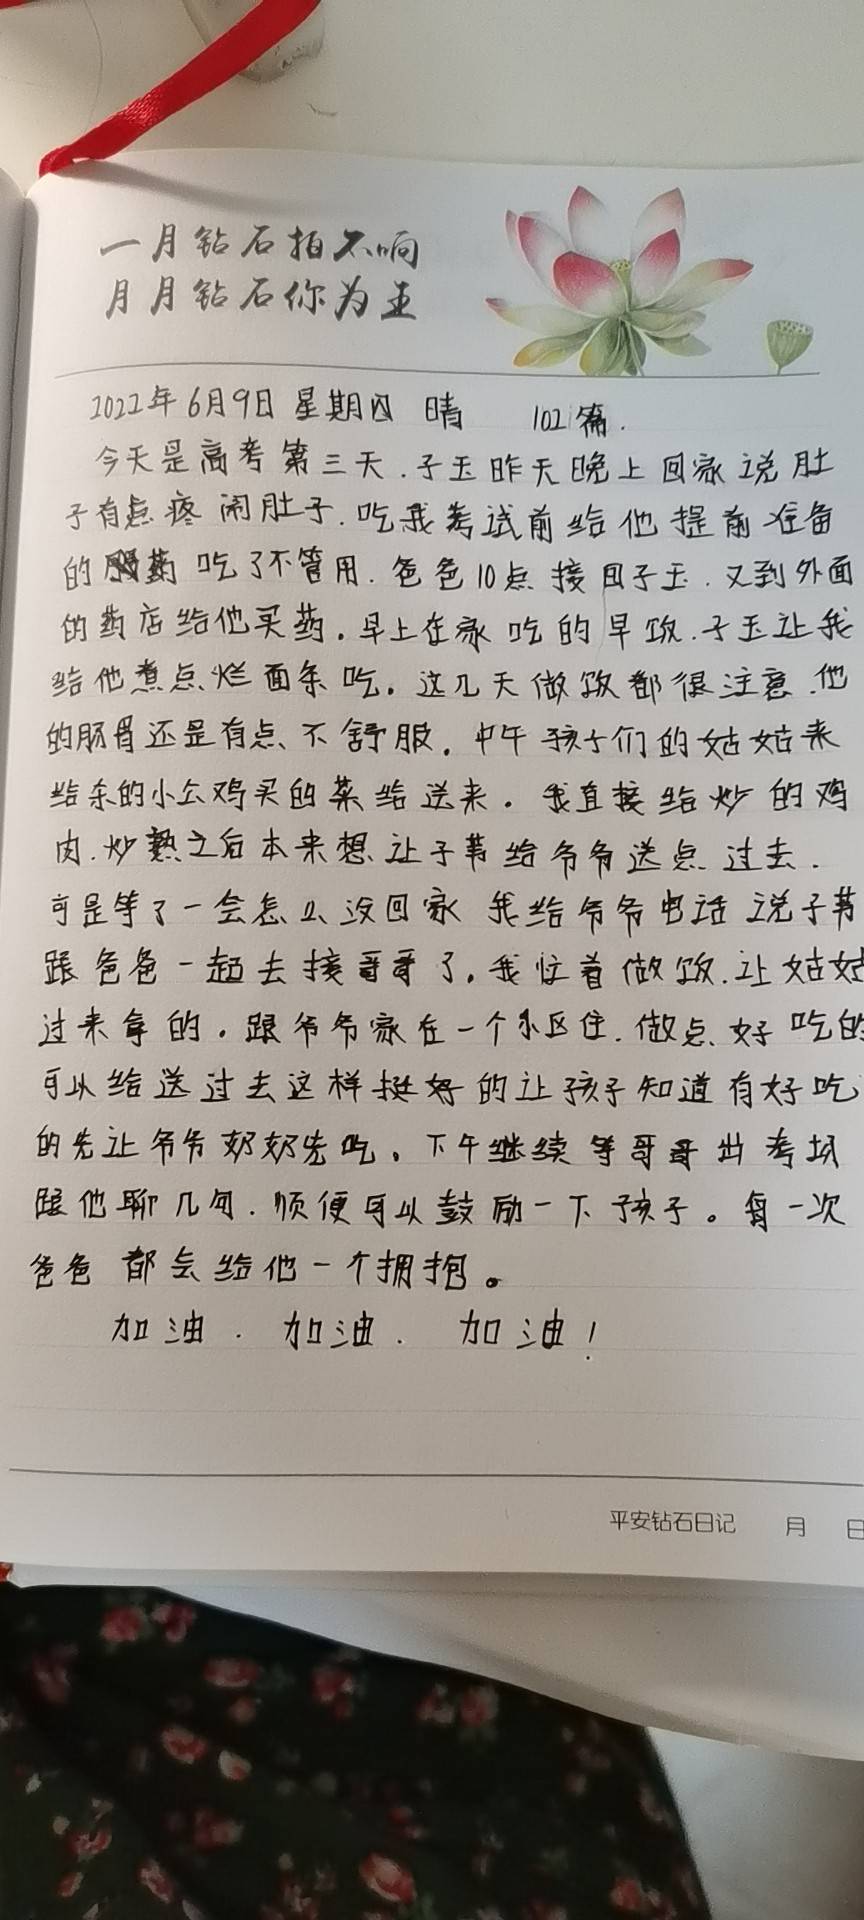 一月钻石拍不响
月月钻石你为王
2022年6月9日 星期四 晴 102篇.
今天是高考第三天.子玉昨天晚上回家说肚
子有点疼闹肚子.吃我考试前给他提前准备
的药吃了不管用.爸爸10点接回子玉.又到外面
的药店给他买药。早上在家吃的早饭.子玉让我
给他煮点烂面条吃。这几天做饭都很注意.他
的肠胃还是有点不舒服。中午孩子们的姑姑来
给杀的小公鸡买的菜给送来。我直接给炒的鸡
肉.炒熟之后本来想让子苇给爷爷送点过去.
可是等了一会怎么没回家 我给爷爷电话说子苇
跟爸爸一起去接哥哥了。我忙着做饭.让姑姑
过来拿的。跟爷爷家在一个小区住.做点好吃的
可以给送过去这样挺好的让孩子知道有好吃
的先让爷爷奶奶先吃。下午继续等哥哥出考场
跟他聊几句.顺便可以鼓励一下孩子。每一次
爸爸都会给他一个拥抱。
加油.加油.加油!
平安钻石日记 月 日